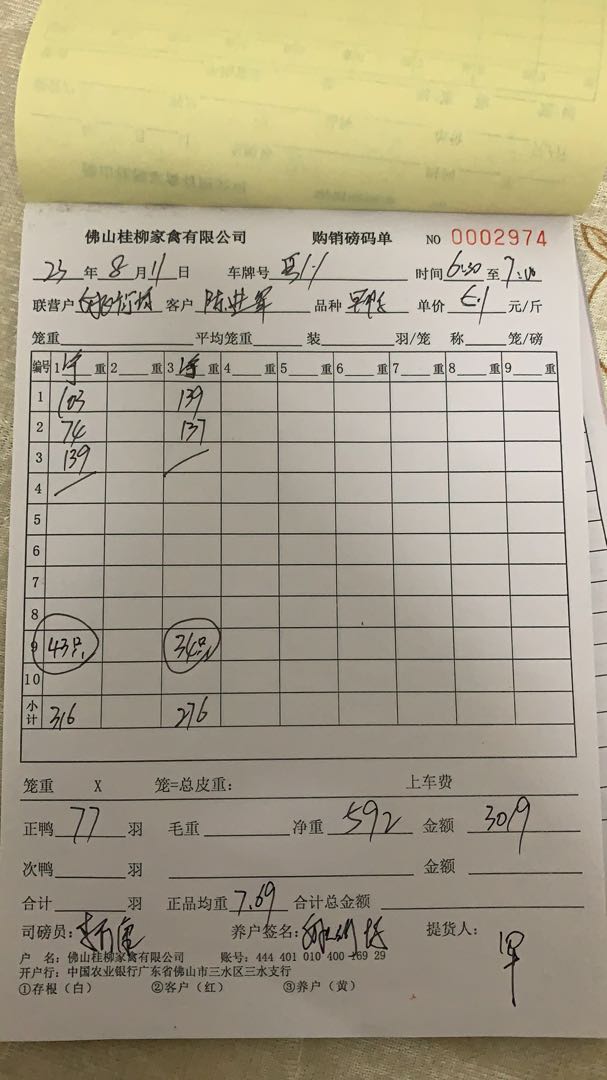 佛山桂柳家禽有限公司 购销磅码单 NO 0002974
23 年 8 月 11 日 车牌号 时间 6:50 至 7:00
联营户 客户 陈进军 品种 单价 5.1 元/斤
笼重 平均笼重 装 羽/笼 称 笼/磅
编号 1 净 重 2 重 3 净 重 4 重 5 重 6 重 7 重 8 重 9 重
1 103 139
2 74 137
3 139
4
5
6
7
8
9 43只 34只
10
小计 316 276
笼重 X 笼=总皮重: 上车费
正鸭 77 羽 毛重 净重 592 金额 3019
次鸭 羽 金额
合计 羽 正品均重 7.69 合计总金额
司磅员: 养户签名: 提货人:
户 名: 佛山桂柳家禽有限公司 账号: 444 401 010 400 169 29
开户行: 中国农业银行广东省佛山市三水区三水支行
①存根(白) ②客户(红) ③养户(黄)